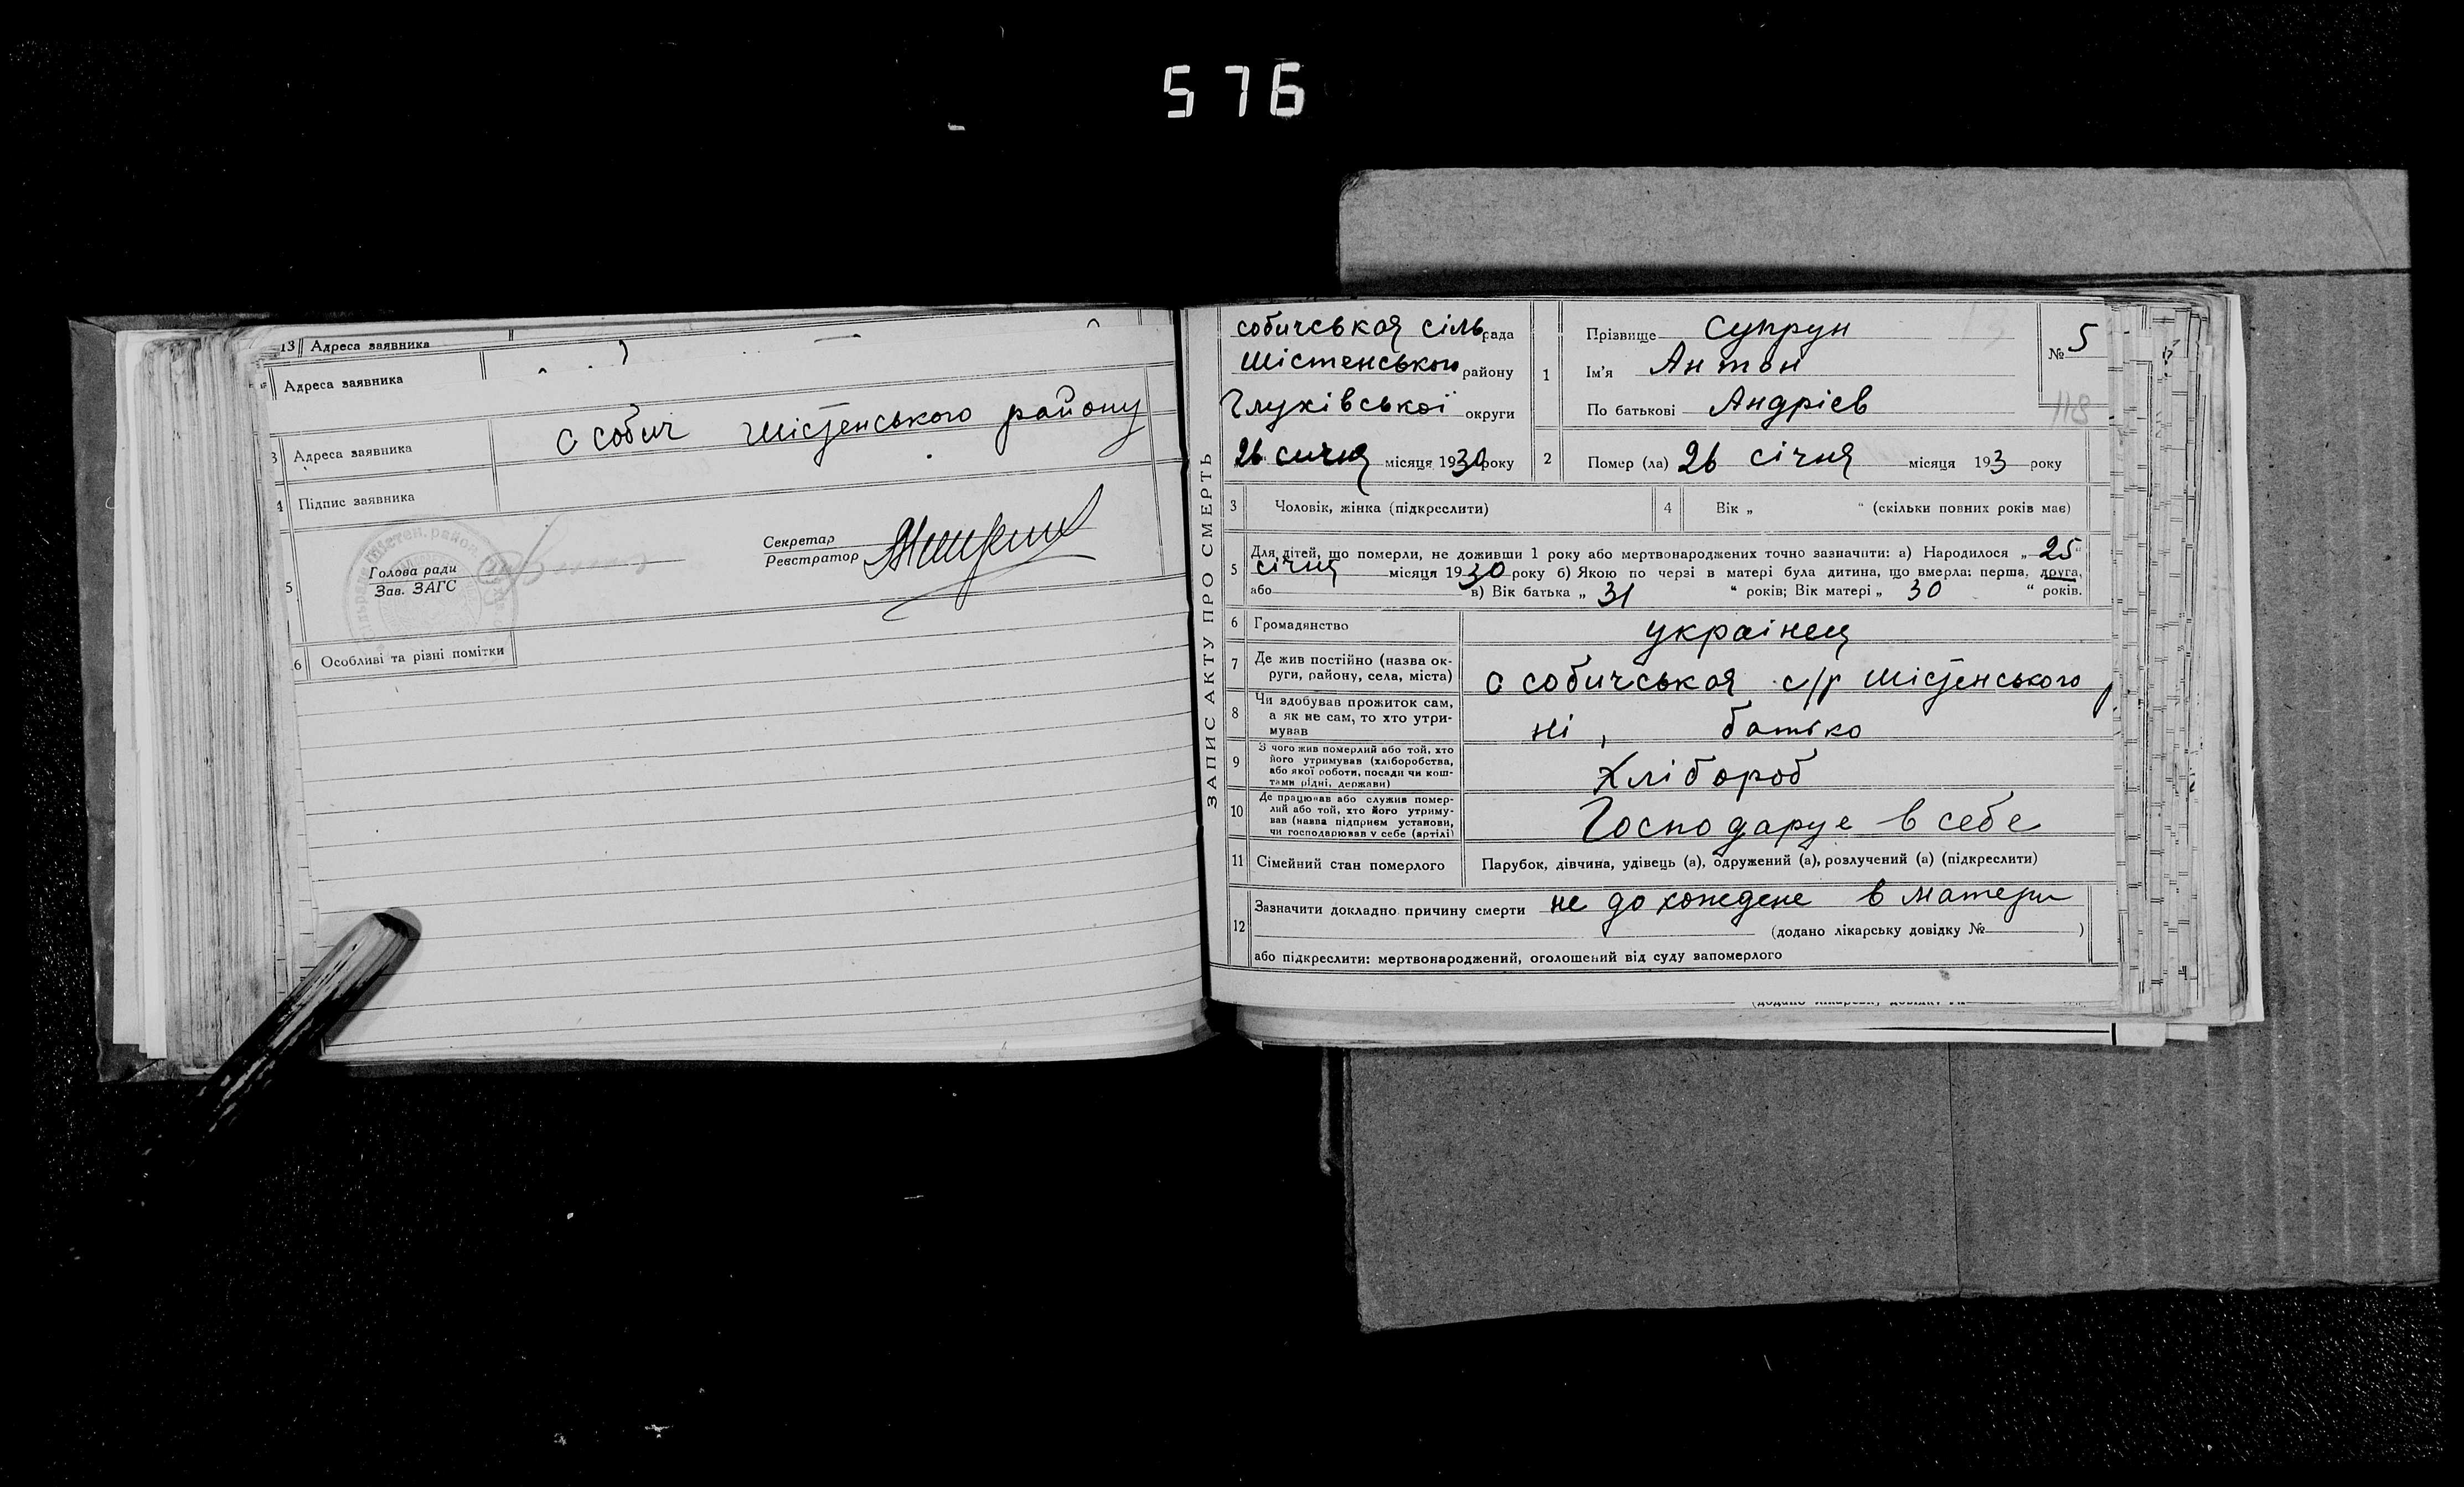 576
13 Адреса заявника
Адреса заявника
3 Адреса заявника с собич шістенського району
4 Підпис заявника
Секретар
Реєстратор
Голова ради
Зав. ЗАГС
5
6 Особливі та різні помітки
ЗАПИС АКТУ ПРО СМЕРТЬ
собичськая сільрада
шістенського району
Глухівської округи
26 сичня місяця 1930 року
1 Прізвище Супрун
Ім'я Антон
По батькові Андрієв
№ 5
118
2 Помер (ла) 26 січня місяця 193 року
3 Чоловік, жінка (підкреслити)
4 Вік „ “ (скільки повних років має)
5 Для дітей, що померли, не доживши 1 року або мертвонароджених точно зазначити: а) Народилося „25“
січня місяця 1930 року б) Якою по черзі в матері була дитина, що вмерла: перша, друга,
або в) Вік батька „ 31 “ років; Вік матері „ 30 “ років.
6 Громадянство украінец
7 Де жив постійно (назва ок-
руги, району, села, міста) с собичськая с/р шістенського р
8 Чи здобував прожиток сам,
а як не сам, то хто утри-
мував ні, батько
9 З чого жив померлий або той, хто
його утримував (хліборобства,
або якої роботи, посади чи кош-
тами рідні, держави) Хлібороб
10 Де працював або служив помер-
лий або той, хто його утриму-
вав (назва підприєм установи,
чи господарював у себе (артілі) Господарує в себе
11 Сімейний стан померлого Парубок, дівчина, удівець (а), одружений (а), розлучений (а) (підкреслити)
12 Зазначити докладно причину смерти не дохождене в матери
(додано лікарську довідку № )
або підкреслити: мертвонароджений, оголошений від суду запомерлого